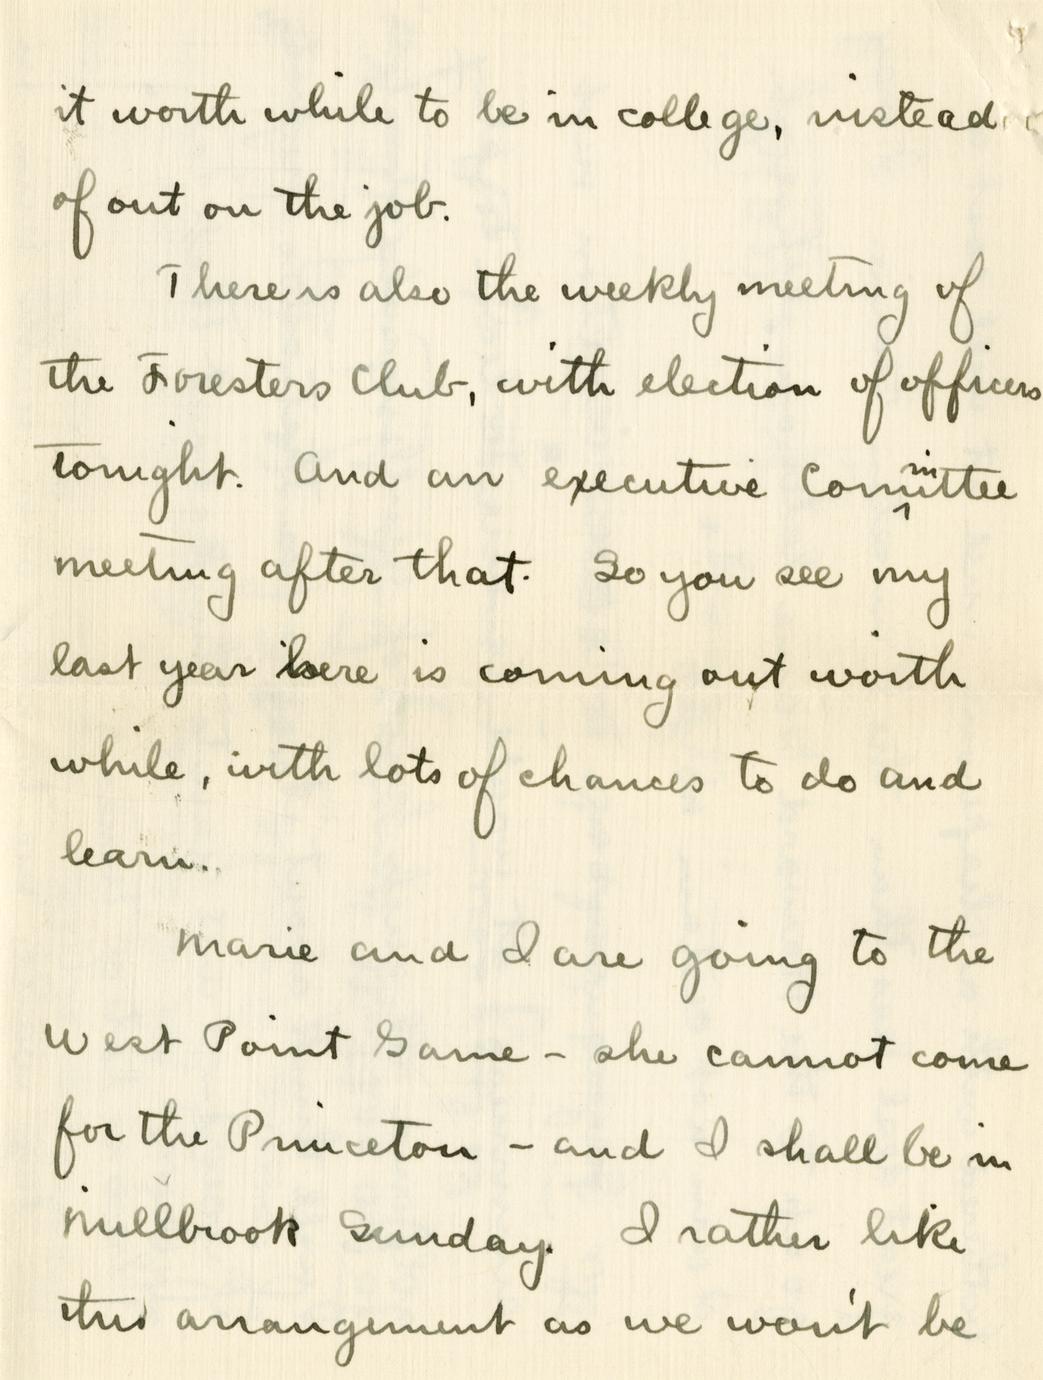 it worth while to be in college, instead
of out on the job.
There is also the weekly meeting of
the Foresters Club, with election of officers
tonight. And an executive Committee
meeting after that. So you see my
last year here is coming out worth
while, with lots of chances to do and
learn.
Marie and I are going to the
West Point Game - she cannot come
for the Princeton - and I shall be in
Millbrook Sunday. I rather like
this arrangement as we won't be